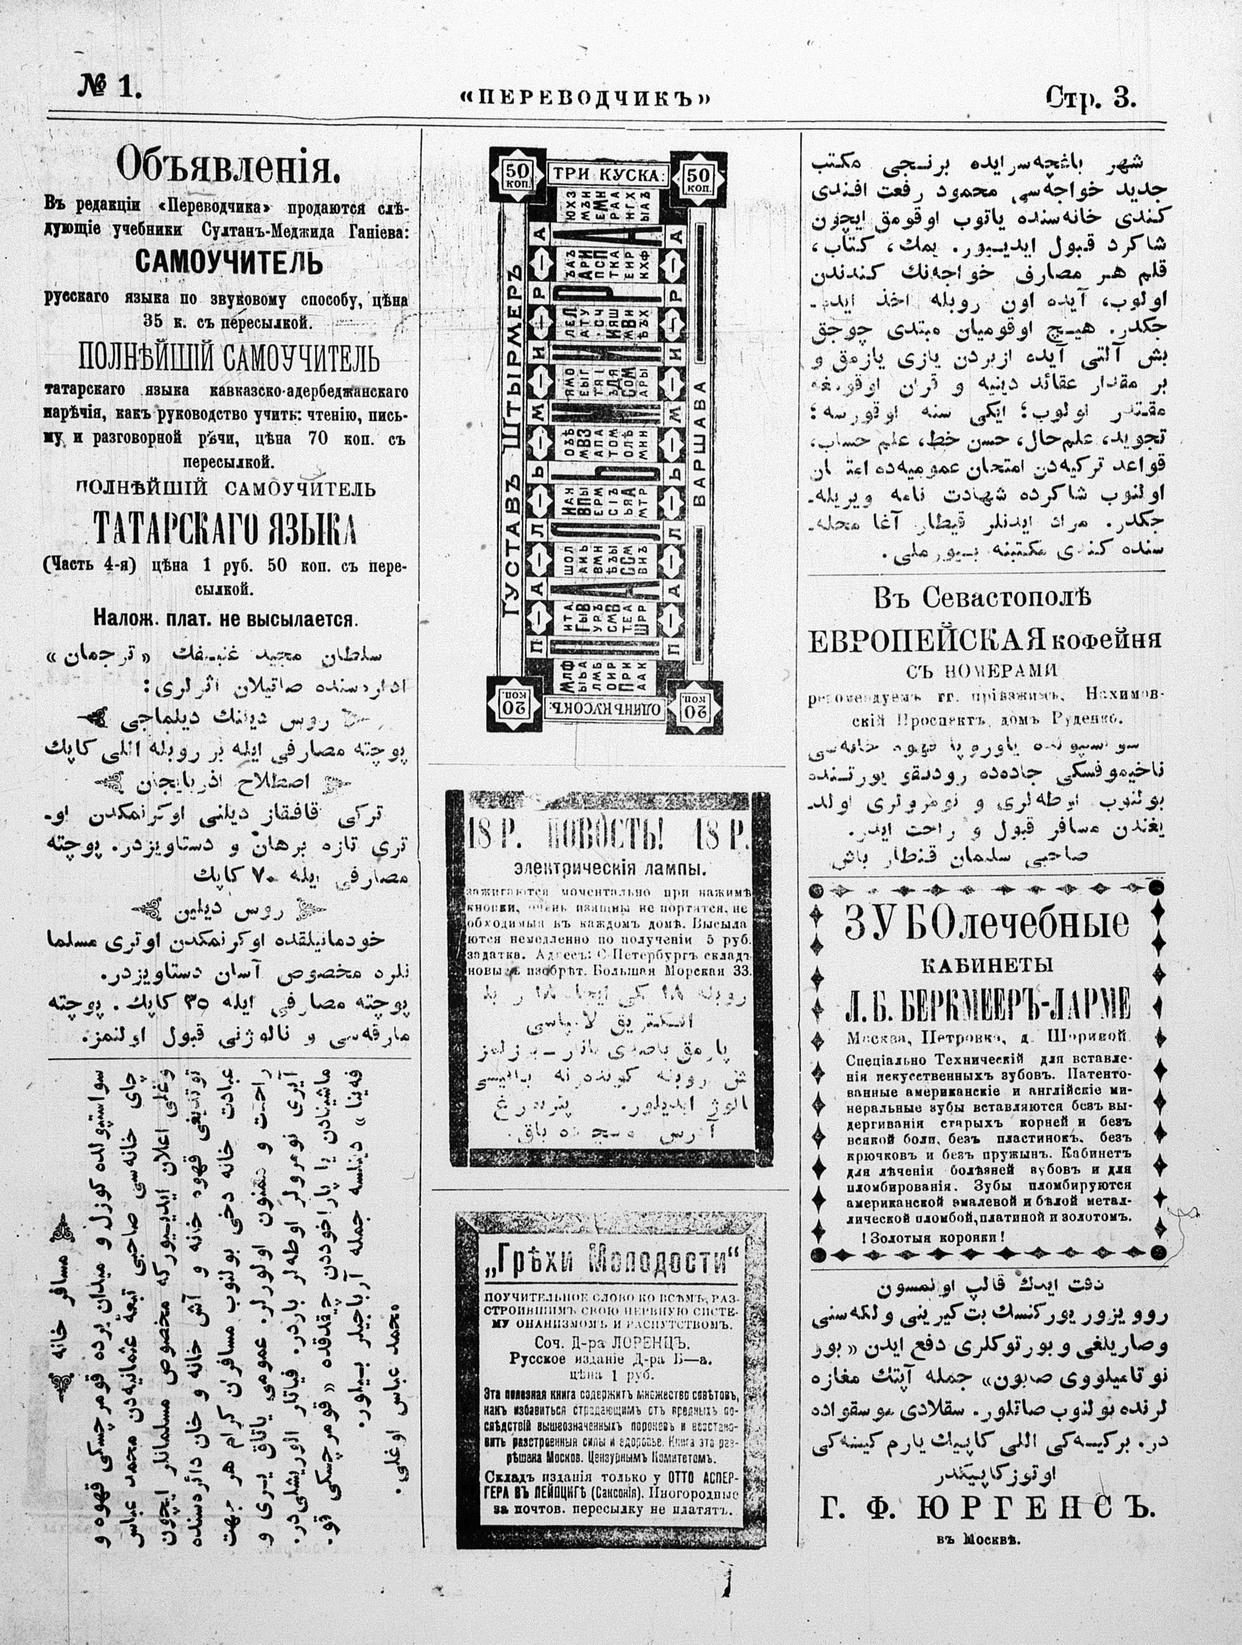 № 1.
«ПЕРЕВОДЧИКЪ»
Стр. 3.
Объявленія.
Въ редакціи «Переводчика» продаются слѣ-
дующіе учебники Султанъ-Меджида Ганіева:
САМОУЧИТЕЛЬ
русскаго языка по звуковому способу, цѣна
35 к. съ пересылкой.
ПОЛНѢЙШІЙ САМОУЧИТЕЛЬ
татарскаго языка кавказско-адербеджанскаго
нарѣчія, какъ руководство учить: чтенію, пись-
му и разговорной рѣчи, цѣна 70 коп. съ
пересылкой.
ПОЛНѢЙШІЙ САМОУЧИТЕЛЬ
ТАТАРСКАГО ЯЗЫКА
(Часть 4-я) цѣна 1 руб. 50 коп. съ пере-
сылкой.
Налож. плат. не высылается.
سلطان مجيد غنيفك «ترجمان»
اداره‌سنده صاتيلان اثرلرى:
روس ديننك ديلماجى
پوچته مصارفى ايله بر روبله اللى كاپك
اصطلاح اذربايجان
تركى قافقاز ديلنى اوكرنمكدن او-
ترى تازه برهان و دستاويزدر. پوچته
مصارفى ايله ٧٠ كاپك
روس ديلين
خودمانيلقده اوكرنمكدن اوترى مسلما
نلره مخصوص آسان دستاويزدر.
پوچته مصارفى ايله ٣٥ كاپك. پوچته
مارفه‌سى و نالوژنى قبول اولنمز.
مسافر خانه
سواستپولده كوزل و ميدان يرده قومرچسكى قهوه و
چاى خانه‌سى صاحبى تبعهٔ عثمانيه‌دن محمد عباس
وغلى اعلان ايديبيوركه مخصوص مسلمانلر ايچون
توتديغى قهوه خانه و آش خانه و خان دائره‌سنده
عبادت خانه دخى بولنوب مسافرن كرام هر جهت
راحت و ممنون اولورلر. عمومى ياتاق يرى و
آيرى نومرولر اوطه‌لر باردر. فياتلر الوريشلى‌در.
ماشينادن يا پاراخوددن چيقدقده «قومرچسكى قو-
فه‌ينا» دينلسه جمله آرباجيلر بيلور.
محمد عباس اوغلى.
50 коп.
ТРИ КУСКА:
50 коп.
ГУСТАВЪ ШТЫРМЕРЪ
ПАЛЬМИРА
ВАРШАВА
20 коп.
ОДИНЪ КУСОКЪ:
20 коп.
18 Р. НОВОСТЬ! 18 Р.
электрическія лампы.
зажигаются моментально при нажимѣ
кнопки, очень изящны не портятся, не
обходимыя къ каждомъ домѣ. Высыла
ются немедленно по полученіи 5 руб.
задатка. Адресъ: С-Петербургъ складъ
новыхъ изобрѣт. Большая Морская 33.
„Грѣхи Молодости“
ПОУЧИТЕЛЬНОЕ СЛОВО КО ВСѢМЪ, РАЗ-
СТРОИВШИМЪ СВОЮ НЕРВНУЮ СИСТЕ-
МУ ОНАНИЗМОМЪ И РАСПУТСТВОМЪ.
Соч. Д-ра ЛОРЕНЦЪ.
Русское изданіе Д-ра Б—а.
цѣна 1 руб.
Эта полезная книга содержитъ множество совѣтовъ,
какъ избавиться страдающимъ отъ вредныхъ по-
слѣдствій вышеозначенныхъ пороковъ и возстано-
вить разстроенныя силы и здоровье. Книга эта раз-
рѣшена Москов. Цензурнымъ Комитетомъ.
Складъ изданія только у ОТТО АСПЕР-
ГЕРА ВЪ ЛЕЙПЦИГѢ (Саксонія). Иногородные
за почтов. пересылку не платятъ.
شهر باغچه‌سرايده برنجى مكتب
جديد خواجه‌سى محمود رفعت افندى
كندى خانه‌سنده ياتوب اوقومق ايچون
شاكرد قبول ايديبور. يمك، كتاب،
قلم هر مصارف خواجه‌نك كندندن
اولوب، آيده اون روبله اخذ ايده-
جكدر. هيچ اوقوميان مبتدى چوجق
بش آلتى آيده ازبردن يازى يازمق و
بر مقدار عقائد دينيه و قران اوقومغه
مقتدر اولوب؛ ايكى سنه اوقورسه؛
تجويد، علم‌حال، حسن خط، علم حساب،
قواعد تركيه‌دن امتحان عموميه‌ده
اولنوب شاكرده شهادت نامه ويريله-
جكدر. مراد ايدنلر قيطار آغا محله-
سنده كندى مكتبنه بيورملى.
Въ Севастополѣ
ЕВРОПЕЙСКАЯ кофейня
СЪ НОМЕРАМИ
рекомендуемъ гг. пріѣзжимъ. Нахимов-
скій Проспектъ, домъ Руденко.
سواستپولده ياوروپا قهوه خانه‌سى
ناخيموفسكى جاده‌ده رودنقو يورتنده
بولنوب اوطه‌لرى و نومرولرى اولد-
يغندن مسافر قبول و راحت ايدر.
صاحبى سلمان قنطار باش
ЗУБОлечебные
КАБИНЕТЫ
Л. Б. БЕРКМЕЕРЪ-ЛАРМЕ
Москва, Петровка, д. Шориной
Спеціально Техническій для вставле-
нія искусственныхъ зубовъ. Патенто-
ванные американскіе и англійскіе ми-
неральные зубы вставляются безъ вы-
дергиванія старыхъ корней и безъ
всякой боли, безъ пластинокъ, безъ
крючковъ и безъ пружынъ. Кабинетъ
для лѣченія болѣзней зубовъ и для
пломбированія. Зубы пломбируются
американской эмалевой и бѣлой метал-
лической пломбой, платиной и золотомъ.
! Золотыя коронки !
دقت ايدك قالپ اولمسون
روو يزور يوركنسك بت‌كيرينى و لكه‌سنى
وصاريلغى و بورتوكلرى دفع ايدن «بور
نو تاميلووى صابون» جمله آپتك مغازه
لرنده بولنوب صاتلور. سقلادى موسقواده
در. بركيسه‌كى اللى كاپيك يارم كيسه‌كى
اوتوز كاپيكدر
Г. Ф. ЮРГЕНСЪ.
въ Москвѣ.